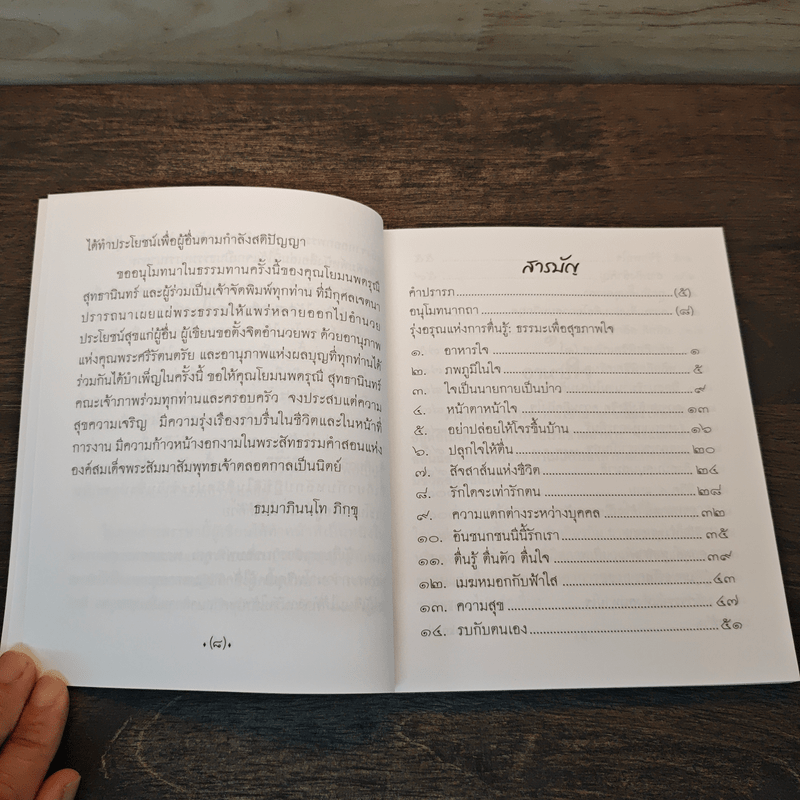 ได้ทำประโยชน์เพื่อผู้อื่นตามกำลังสติปัญญา
ขออนุโมทนาในธรรมทานครั้งนี้ของคุณโยมนพดรุณี
สุทธานินทร์ และผู้ร่วมเป็นเจ้าจัดพิมพ์ทุกท่าน ที่มีกุศลเจตนา
ปรารถนาเผยแผ่พระธรรมให้แพร่หลายออกไปอำนวย
ประโยชน์สุขแก่ผู้อื่น ผู้เขียนขอตั้งจิตอำนวยพร ด้วยอานุภาพ
แห่งคุณพระศรีรัตนตรัย และอานุภาพแห่งผลบุญที่ทุกท่านได้
ร่วมกันได้บำเพ็ญในครั้งนี้ ขอให้คุณโยมนพดรุณี สุทธานินทร์
คณะเจ้าภาพร่วมทุกท่านและครอบครัว จงประสบแต่ความ
สุขความเจริญ มีความรุ่งเรืองราบรื่นในชีวิตและในหน้าที่
การงาน มีความก้าวหน้างอกงามในพระสัทธรรมคำสอนแห่ง
องค์สมเด็จพระสัมมาสัมพุทธเจ้าตลอดกาลเป็นนิตย์
ธมฺมาภินนฺโท ภิกฺขุ
•(๘)•
สารบัญ
คำปรารภ.....(๕)
อนุโมทนากถา.....(๘)
รุ่งอรุณแห่งการตื่นรู้: ธรรมะเพื่อสุขภาพใจ
๑. อาหารใจ.....๑
๒. ภพภูมิในใจ.....๕
๓. ใจเป็นนายกายเป็นบ่าว.....๙
๔. หน้าตาหน้าใจ.....๑๓
๕. อย่าปล่อยให้โจรขึ้นบ้าน.....๑๖
๖. ปลุกใจให้ตื่น.....๒๐
๗. สิ่งสาส์นแห่งชีวิต.....๒๔
๘. รักใดจะเท่ารักตน.....๒๘
๙. ความแตกต่างระหว่างบุคคล.....๓๒
๑๐. อันชนกชนนีนี้รักเรา.....๓๕
๑๑. ตื่นรู้ ตื่นตัว ตื่นใจ.....๓๙
๑๒. เมฆหมอกกับฟ้าใส.....๔๓
๑๓. ความสุข.....๔๗
๑๔. รบกับตนเอง.....๕๑